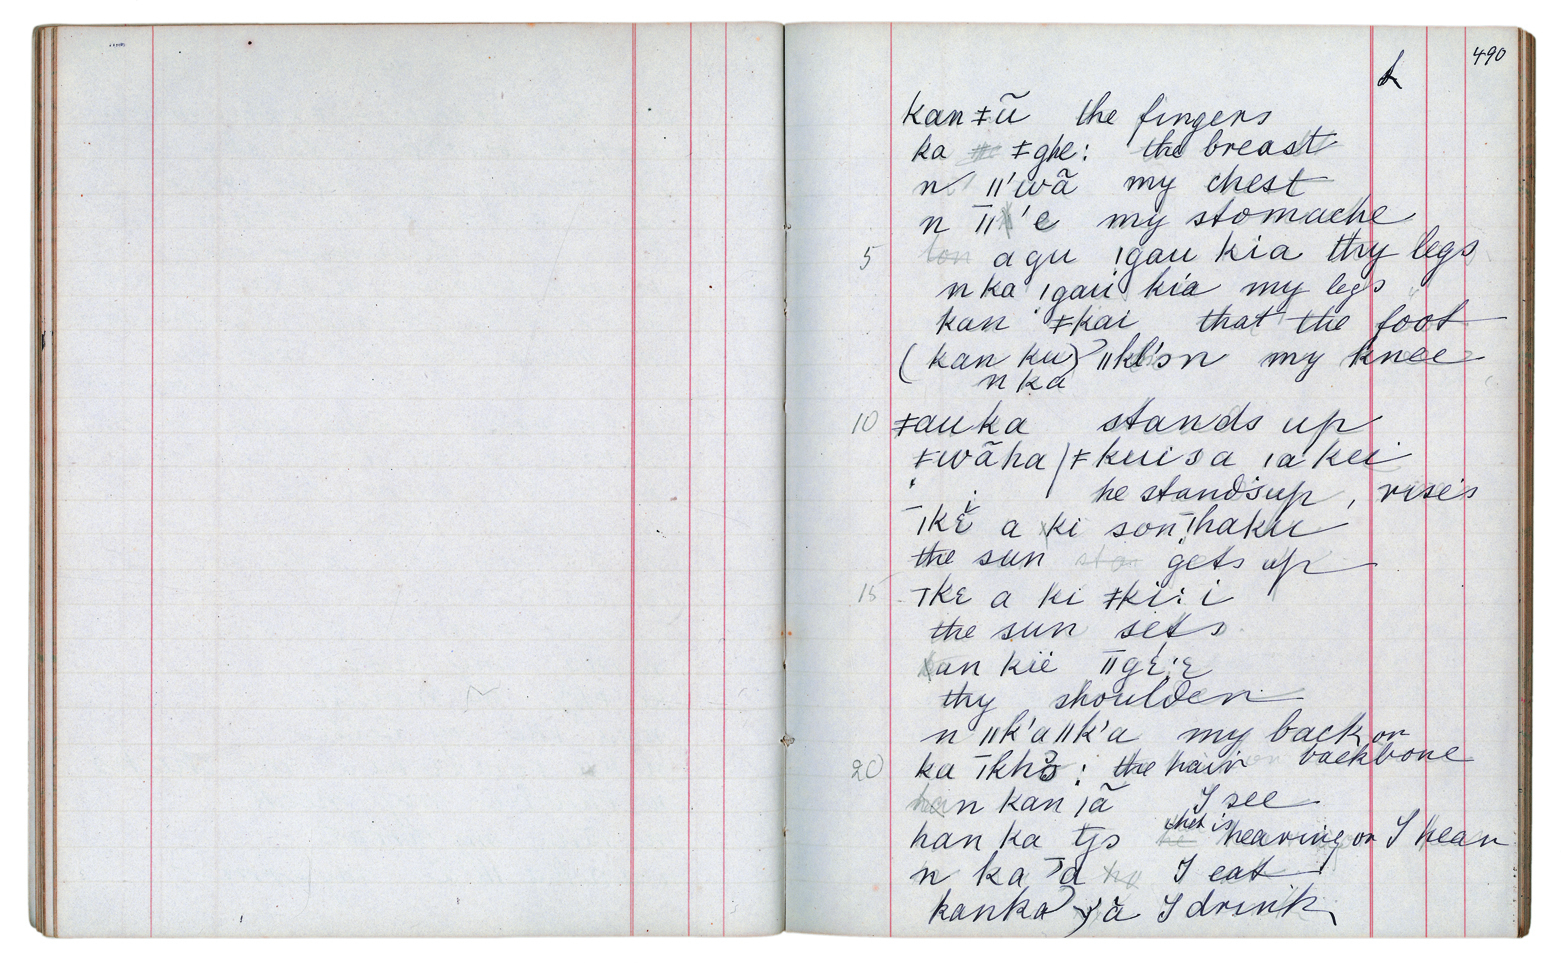 490
kan ǂũ the fingers
ka ǂghe: the breast
n ǁ'wã my chest
n ǁ'e my stomache
5 a gu ǀgau kia thy legs
n ka ǀgau kia my legs
kan ǂkai that the foot
(kan ku) my knee
n ka
10 ǂauka stands up
ǂwãha / ǂkuisa ǀa kei
he stands up, rises
ǀkɛ a ki son ǀhaku
the sun gets up
15 ǀkɛ a ki ǂki: i
the sun sets
an kië ǁgɛ:ɛ
thy shoulder
n ǁk'aǁk'a my back or
backbone
20 ka : the hair
n kan ǀã I see
han ka tʃs that is hearing or I hear
n ka ˀa I eat
kanka I drink